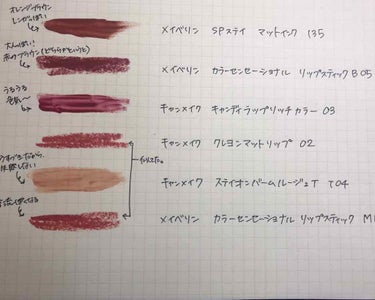 オレンジブラウン
レンガっぽい!
メイベリン SPステイ マットインク 135
大人っぽい!
赤みブラウン(どちらかというと)
メイベリン カラーセンセーショナル リップスティック B 05
うるうる
キャンメイク キャンディラップリッチカラー 03
キャンメイク クレヨンマットリップ 02
キャンメイク ステイオンバームルージュT T04
メイベリン カラーセンセーショナル リップスティック M